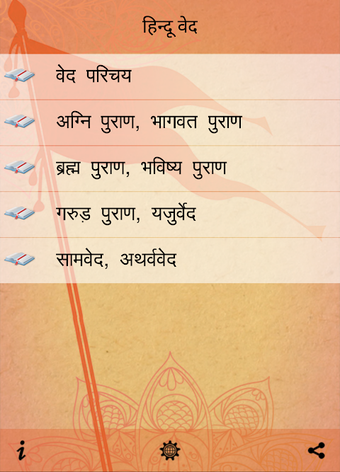 हिन्दू वेद
वेद परिचय
अग्नि पुराण, भागवत पुराण
ब्रह्म पुराण, भविष्य पुराण
गरुड़ पुराण, यजुर्वेद
सामवेद, अथर्ववेद